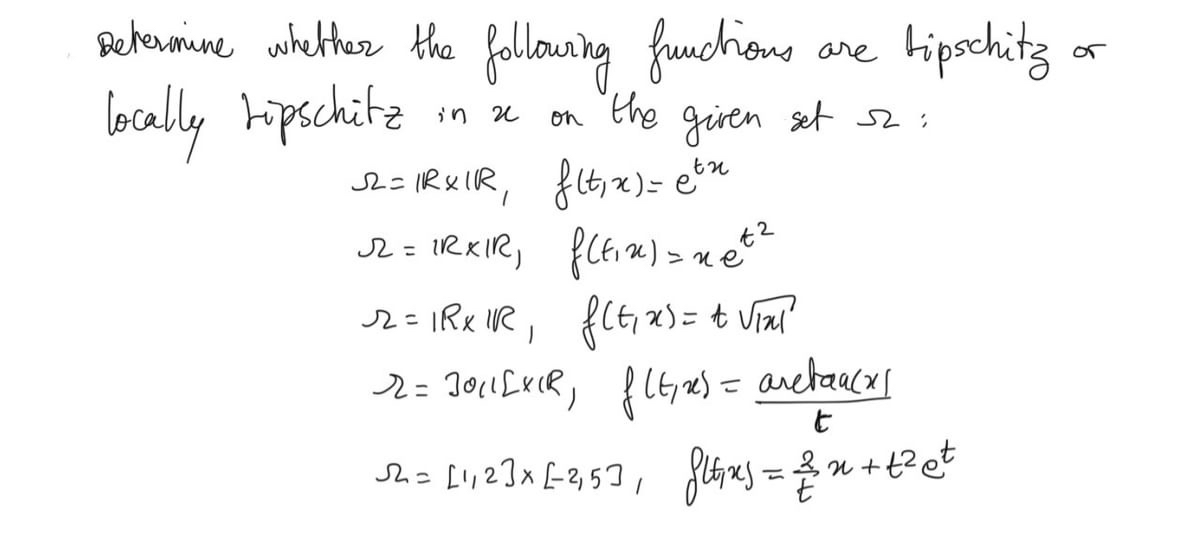 Determine whether the following functions are Lipschitz or
locally Lipschitz in x on the given set Ω :
Ω = ℝ×ℝ, f(t,x) = e^{tx}
Ω = ℝ×ℝ, f(t,x) = x e^{t^2}
Ω = ℝ×ℝ, f(t,x) = t √|x|
Ω = ]0,1[×ℝ, f(t,x) = arctan(x) / t
Ω = [1,2]×[-2,5], f(t,x) = 2/t x + t² e^t